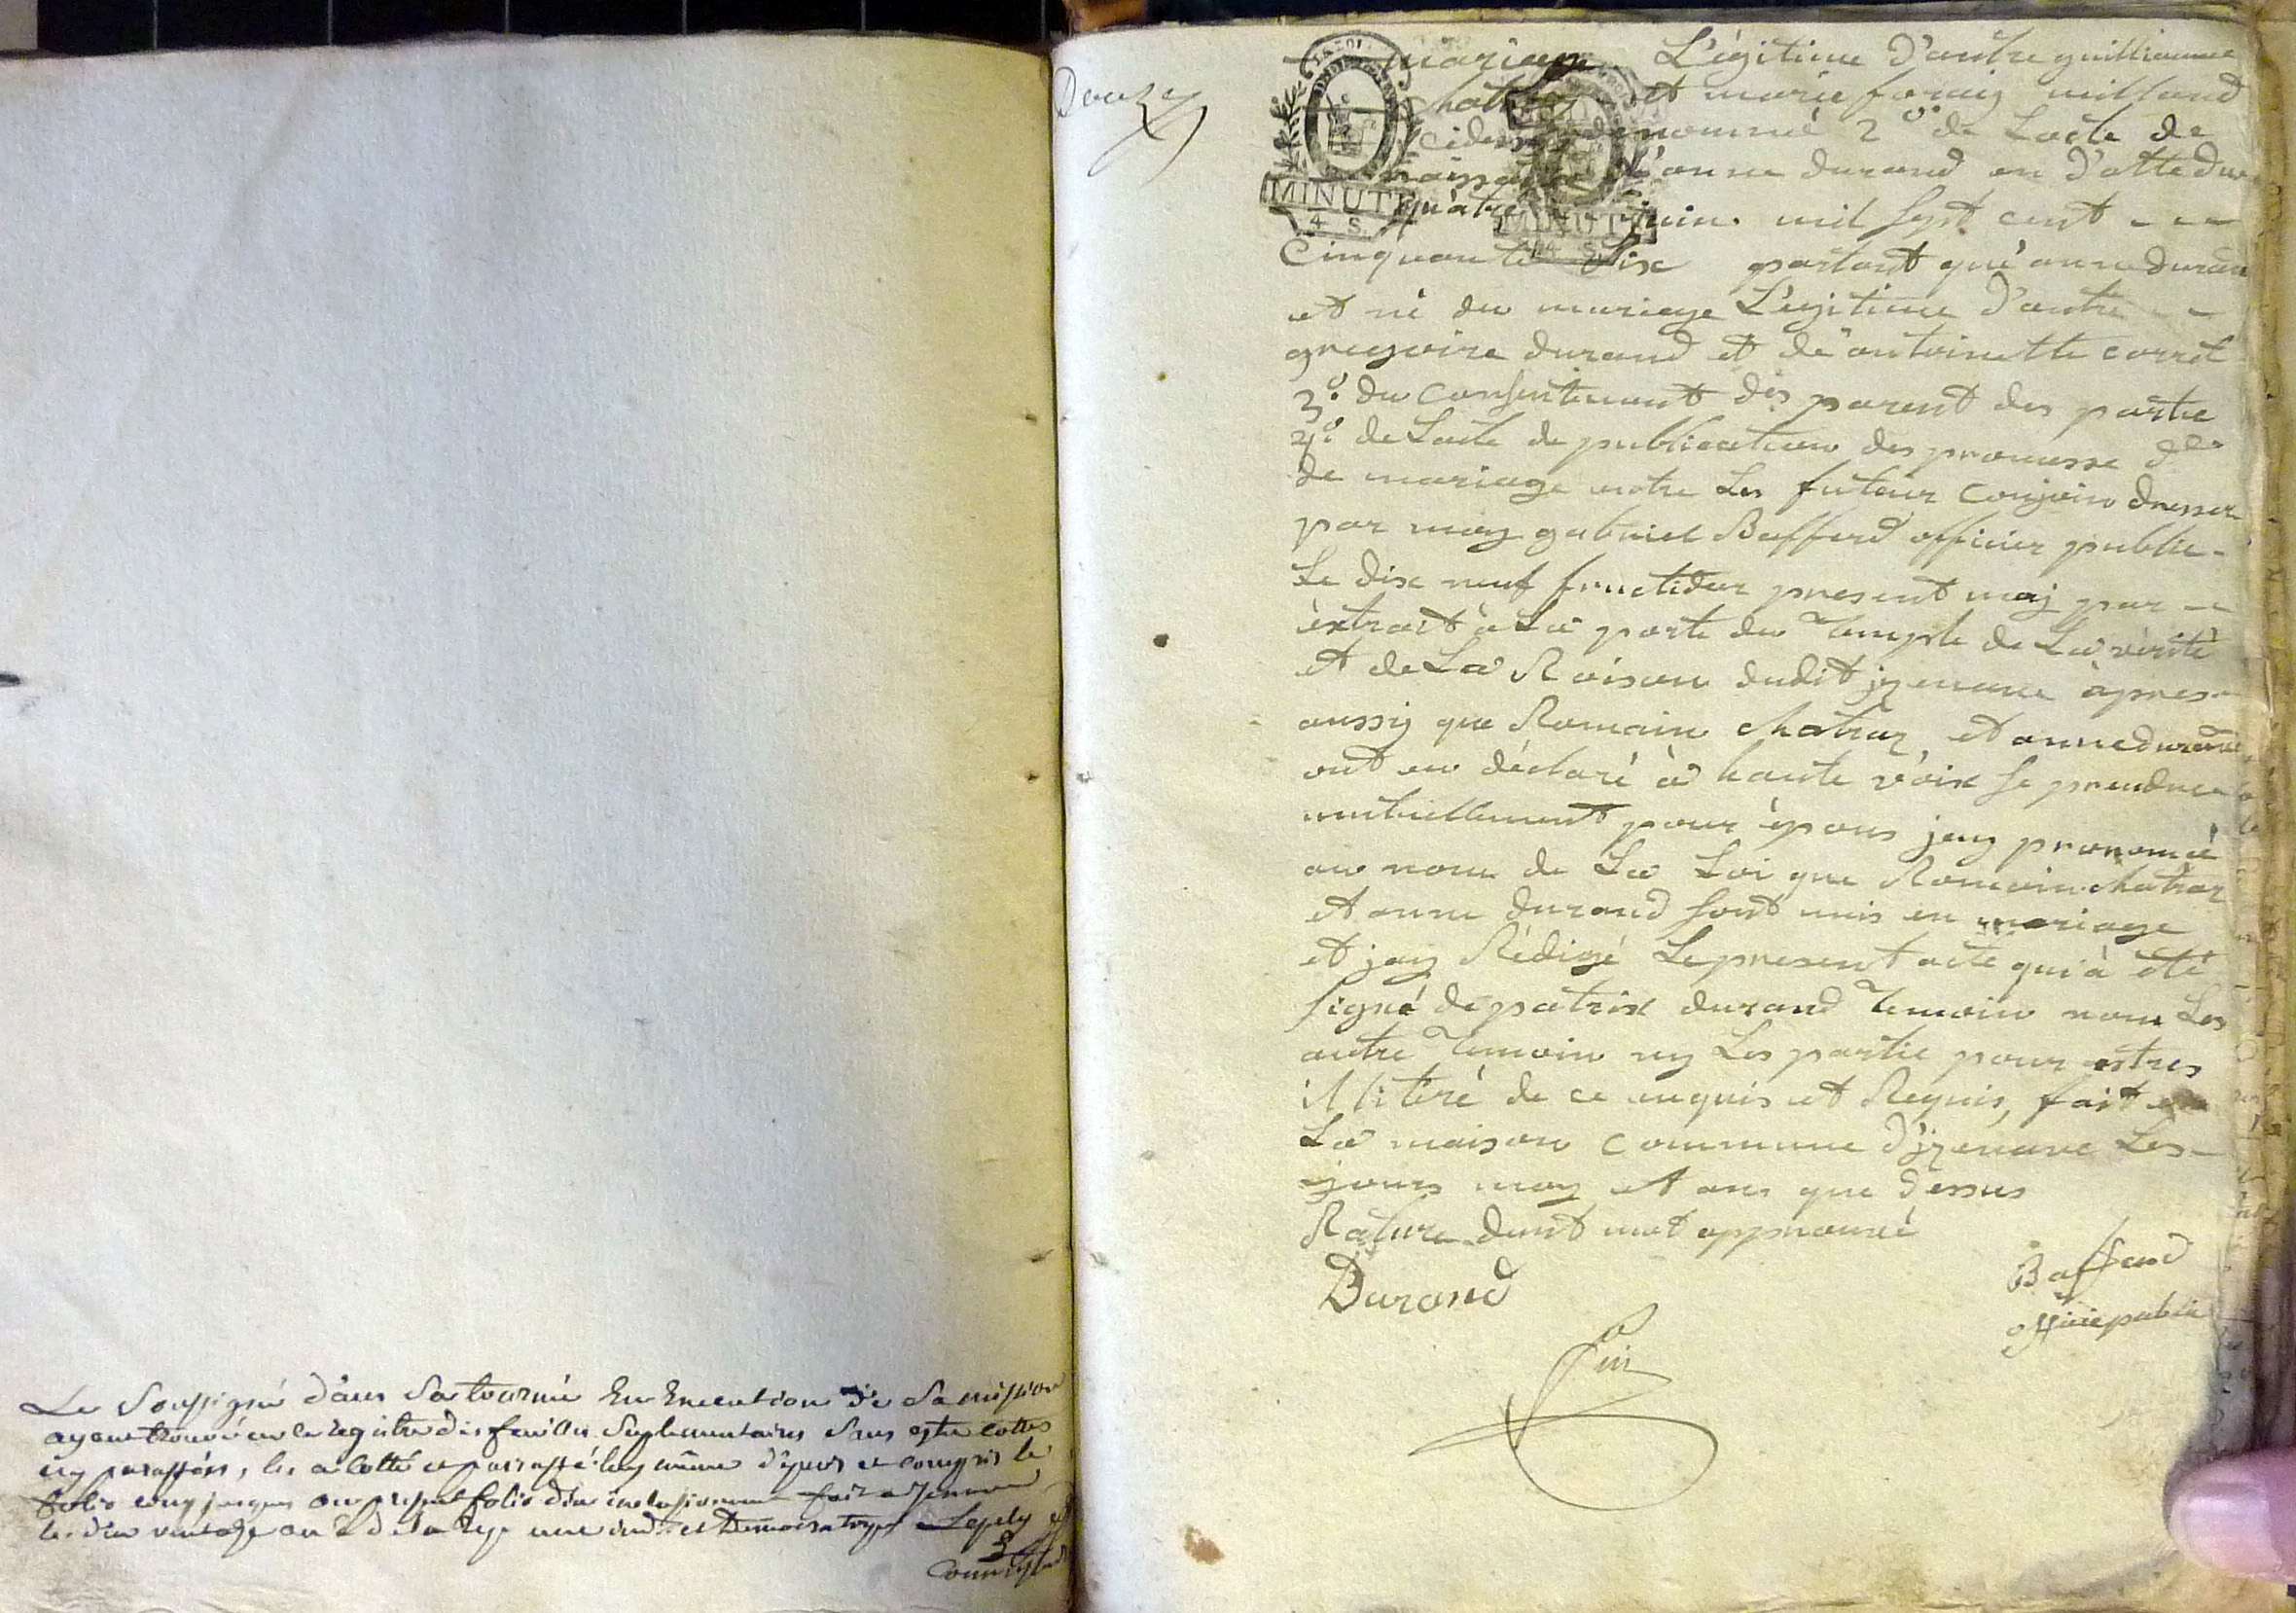 Le Soussigné dans sa tournée En Execution de sa mission
ayant trouvé en le registre des feuilles suplementaires sans estre cottés
ny paraffés, les a cotté et parraffé luy même depuis et compris le
folio cinq jusques au present folio dix inclusivement fait a Izenave
le dix vendre an 3 de la Rep une ind. et Democratique
Douze
mariage Légitime d'autre guilliaume
chatraz et marie foraiz milland
cidessus denommé 2° de Lacte de
naissance d'anne durand en d'atte du
quatre juin mil sept cent - - -
Cinquante Six partant qu'anne durand
et né du mariage Légitime d'autre - -
gregoire durand et de antoinette corret
3° du consentement des parent des partie
4° de Lacte de publication des promesse de
de mariage entre Les futeur conjoin dresser
par moy gabriel Bafferd officier public -
Le dix neuf fructidor present moj par --
èxtrait à La porte du Temple de La vérité
et de La Raison dudit jzenave àpres -
aussij que Romain chatraz et anne durand
ont eu déclaré à haute voix se prendre
mutuellement pour épous jay prononcé
au nom de La Loi que Romain chatraz
et anne durand sont unis en mariage
et jay Rédigé Le present acte qui à été
signé de patrix durand Temoin nom Les
autre Temoin ny Les partie pour estres
illitéré de ce enquis et Requis, fait en
La maison commune d'jzenave Les -
jours moy et ans que dessus
Rature dunt mot approuvé
Durand
Baffend
officie public
fin
MINUTE
4 S.
MINUTE
4 S